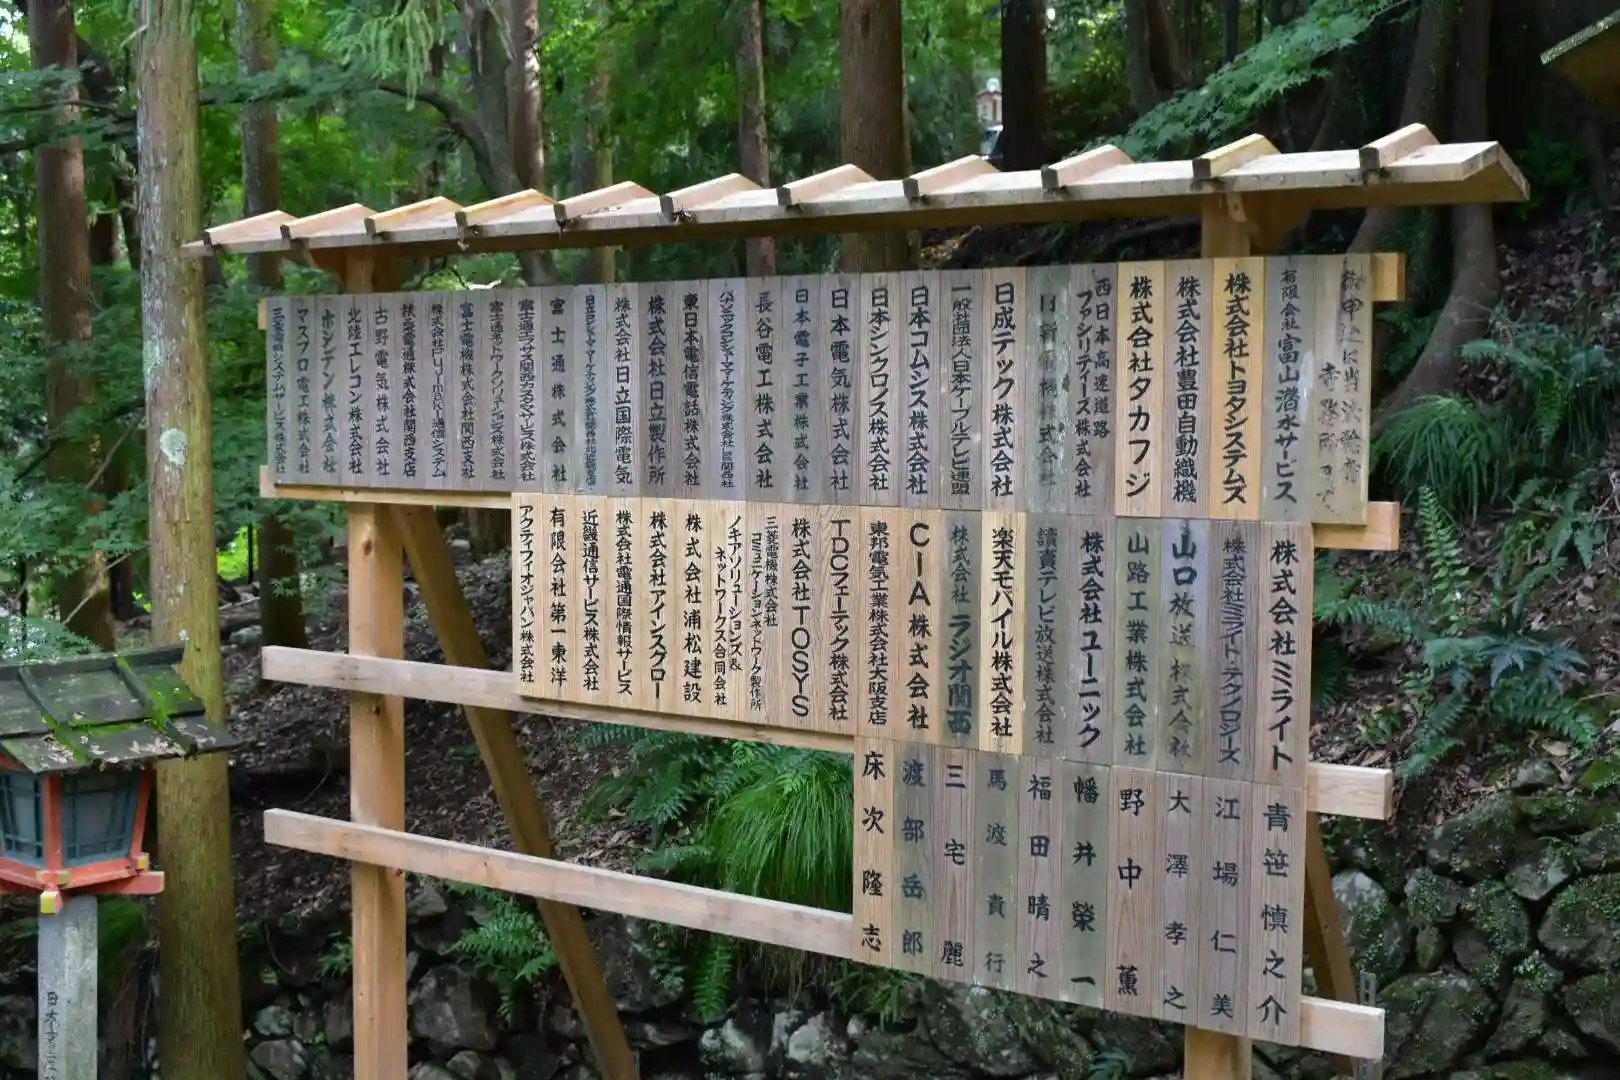 御申込は当法輪寺
寺務所まで
有限会社富山潜水サービス
株式会社トヨタシステムズ
株式会社豊田自動織機
株式会社タカフジ
西日本高速道路
ファシリティーズ株式会社
日新電機株式会社
日成テック株式会社
一般社団法人日本ケーブルテレビ連盟
日本コムシス株式会社
日本シンクロノス株式会社
日本電気株式会社
日本電子工業株式会社
長谷電工株式会社
東日本電信電話株式会社
株式会社日立製作所
株式会社日立国際電気
富士通株式会社
富士通エフサス関西カスタマサービス株式会社
富士通ネットワークソリューションズ株式会社
富士電機株式会社関西支社
扶桑電通株式会社関西支店
古野電気株式会社
北陸エレコン株式会社
ホシデン株式会社
マスプロ電工株式会社
三菱電機システムサービス株式会社
株式会社ミライト
株式会社ミライト・テクノロジーズ
山口放送株式会社
山路工業株式会社
株式会社ユーニック
讀賣テレビ放送株式会社
楽天モバイル株式会社
株式会社ラジオ関西
CIA株式会社
東邦電気工業株式会社大阪支店
TDCフェーテック株式会社
株式会社TOSYS
三菱電機株式会社
コミュニケーション・ネットワーク製作所
ノキアソリューションズ&
ネットワークス合同会社
株式会社浦松建設
株式会社アインスフロー
株式会社電通国際情報サービス
近畿通信サービス株式会社
有限会社第一東洋
アクティフィオジャパン株式会社
青笹慎之介
江場仁美
大澤孝之
野中薫
幡井榮一
福田晴之
馬渡貴行
三宅麗
渡部岳郎
床次隆志